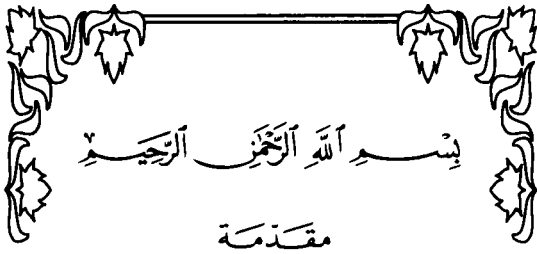 بِسْمِ ٱللَّهِ ٱلرَّحْمَٰنِ ٱلرَّحِيمِ
مقَدّمَة